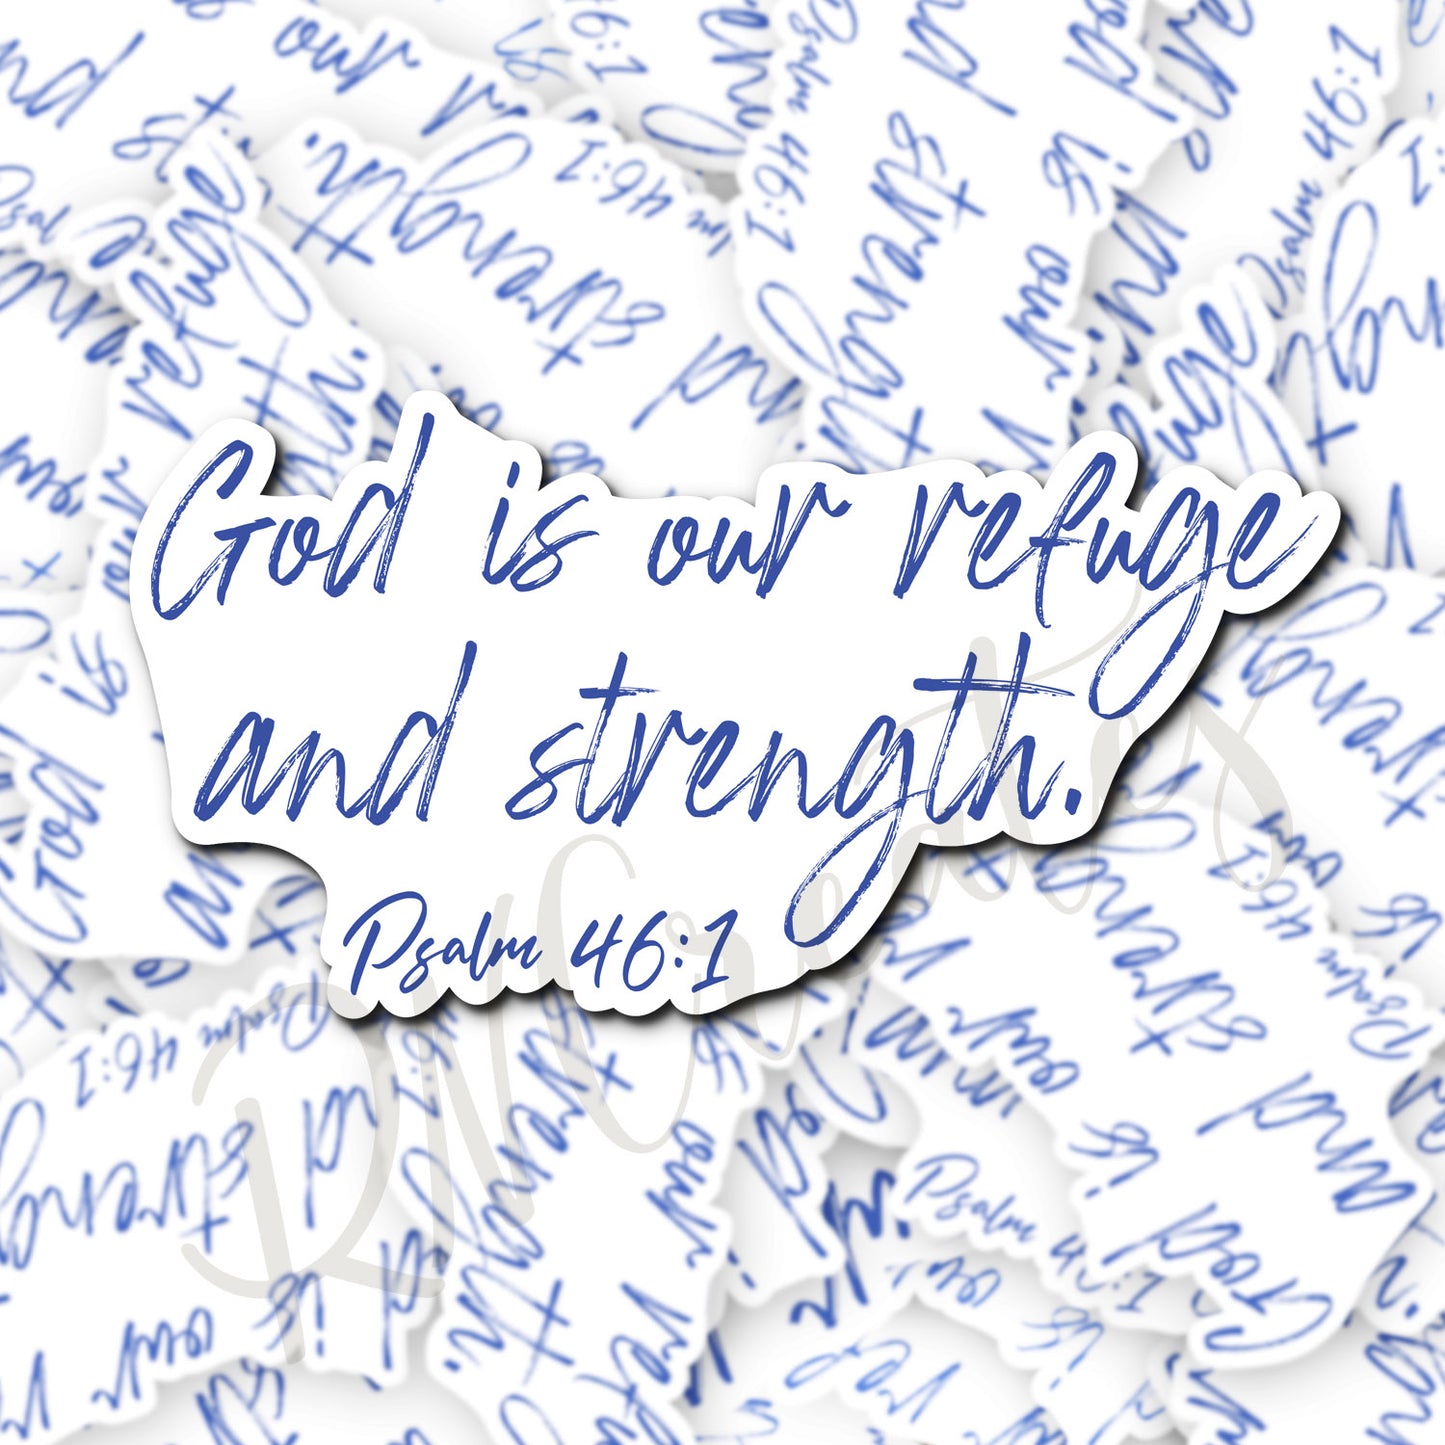 God is our refuge
and strength.
Psalm 46:1
RMCreates